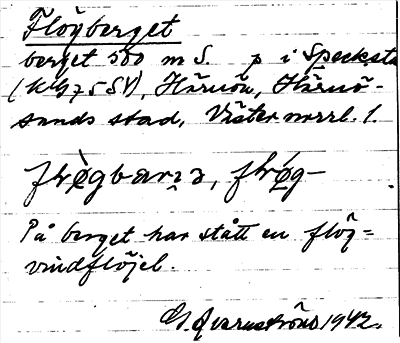 Flöyberget
berget 500 m S. p i Specksta
(kbl 75 SV), Härnön, Härnö-
sands stad, Västernorrl. l.
På berget har stått en flög=
vindflöjel.
G. Qvarnström 1942.